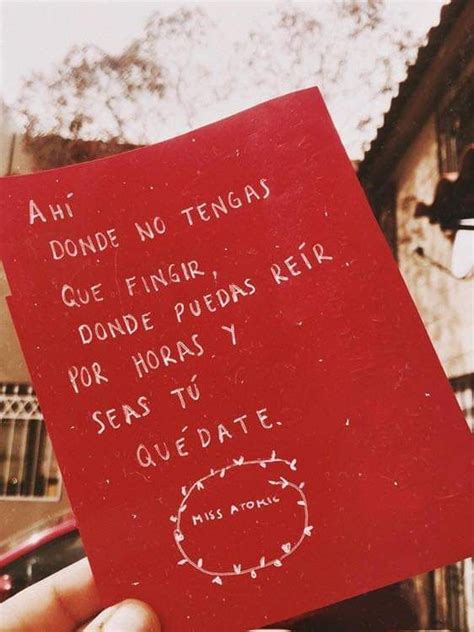 AHÍ
DONDE NO TENGAS
QUE FINGIR,
DONDE PUEDAS REÍR
POR HORAS Y
SEAS TÚ
QUÉDATE.
MISS ATOMIC